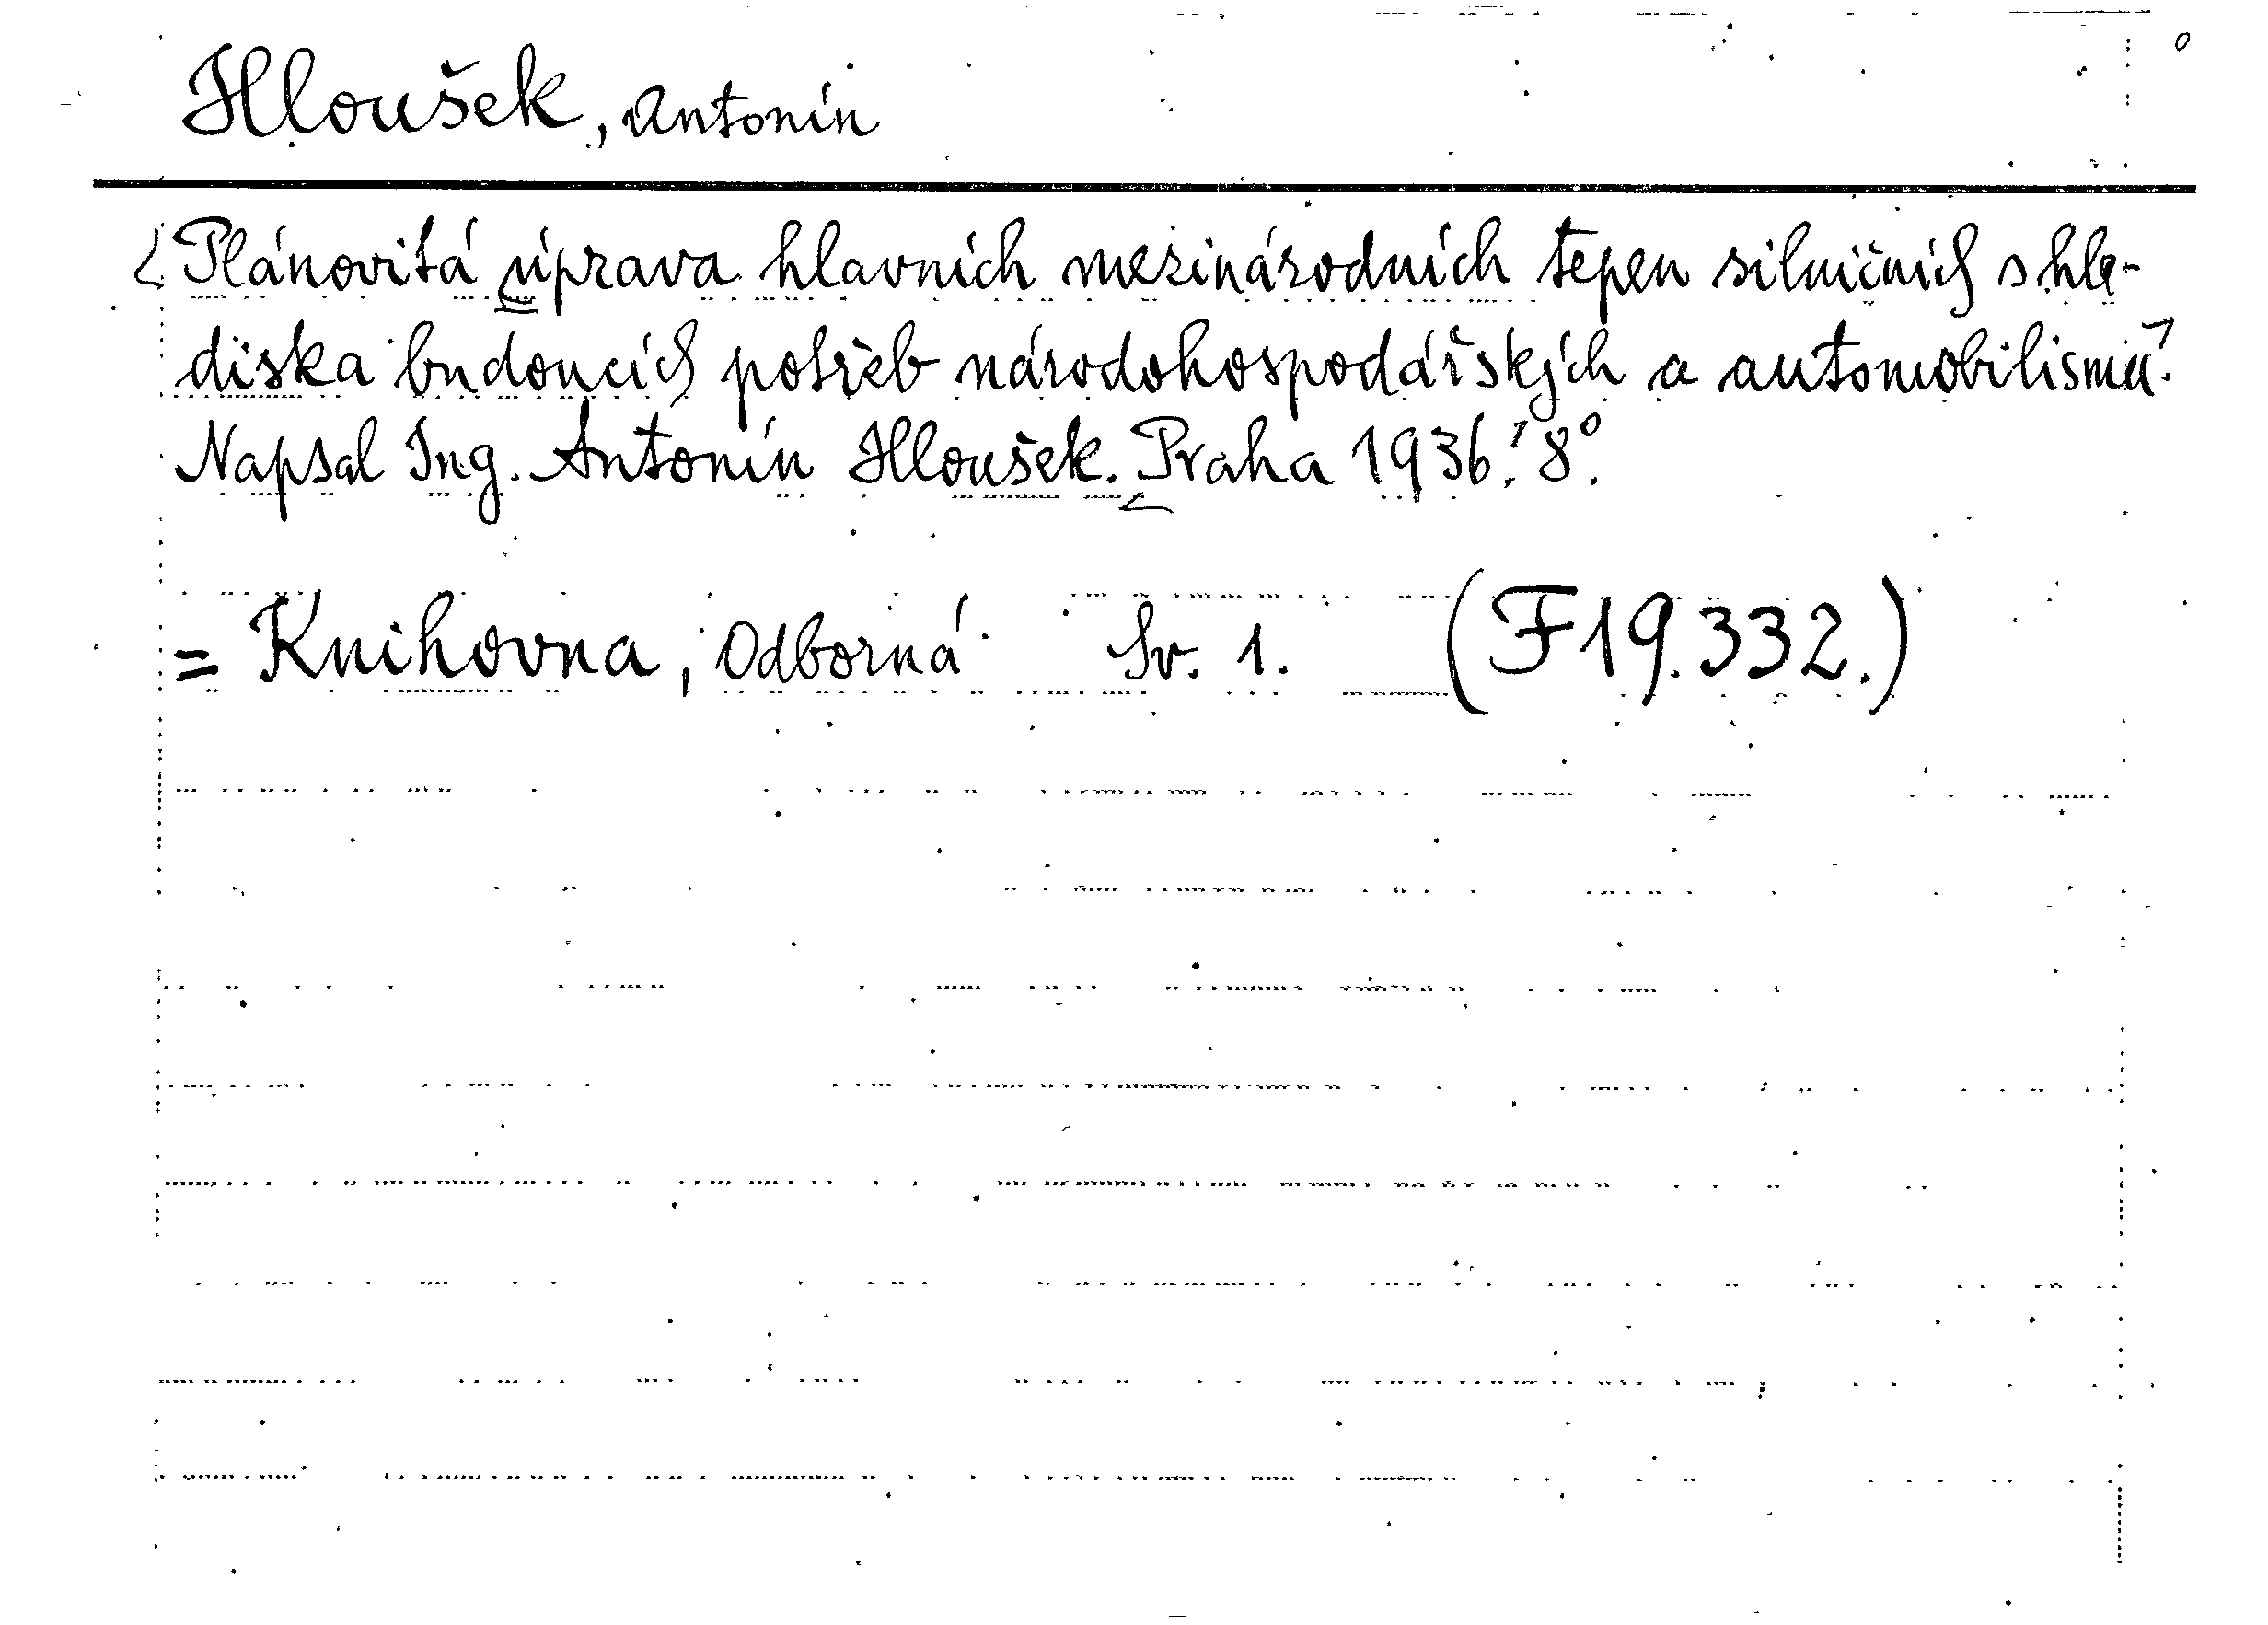 Hloušek, Antonín
Plánovitá úprava hlavních mezinárodních tepen silničních s hle-
diska budoucích potřeb národohospodářských a automobilismu.
Napsal Ing. Antonín Hloušek. Praha 1936. 8°.
= Knihovna, Odborná Sv. 1. (F19.332.)